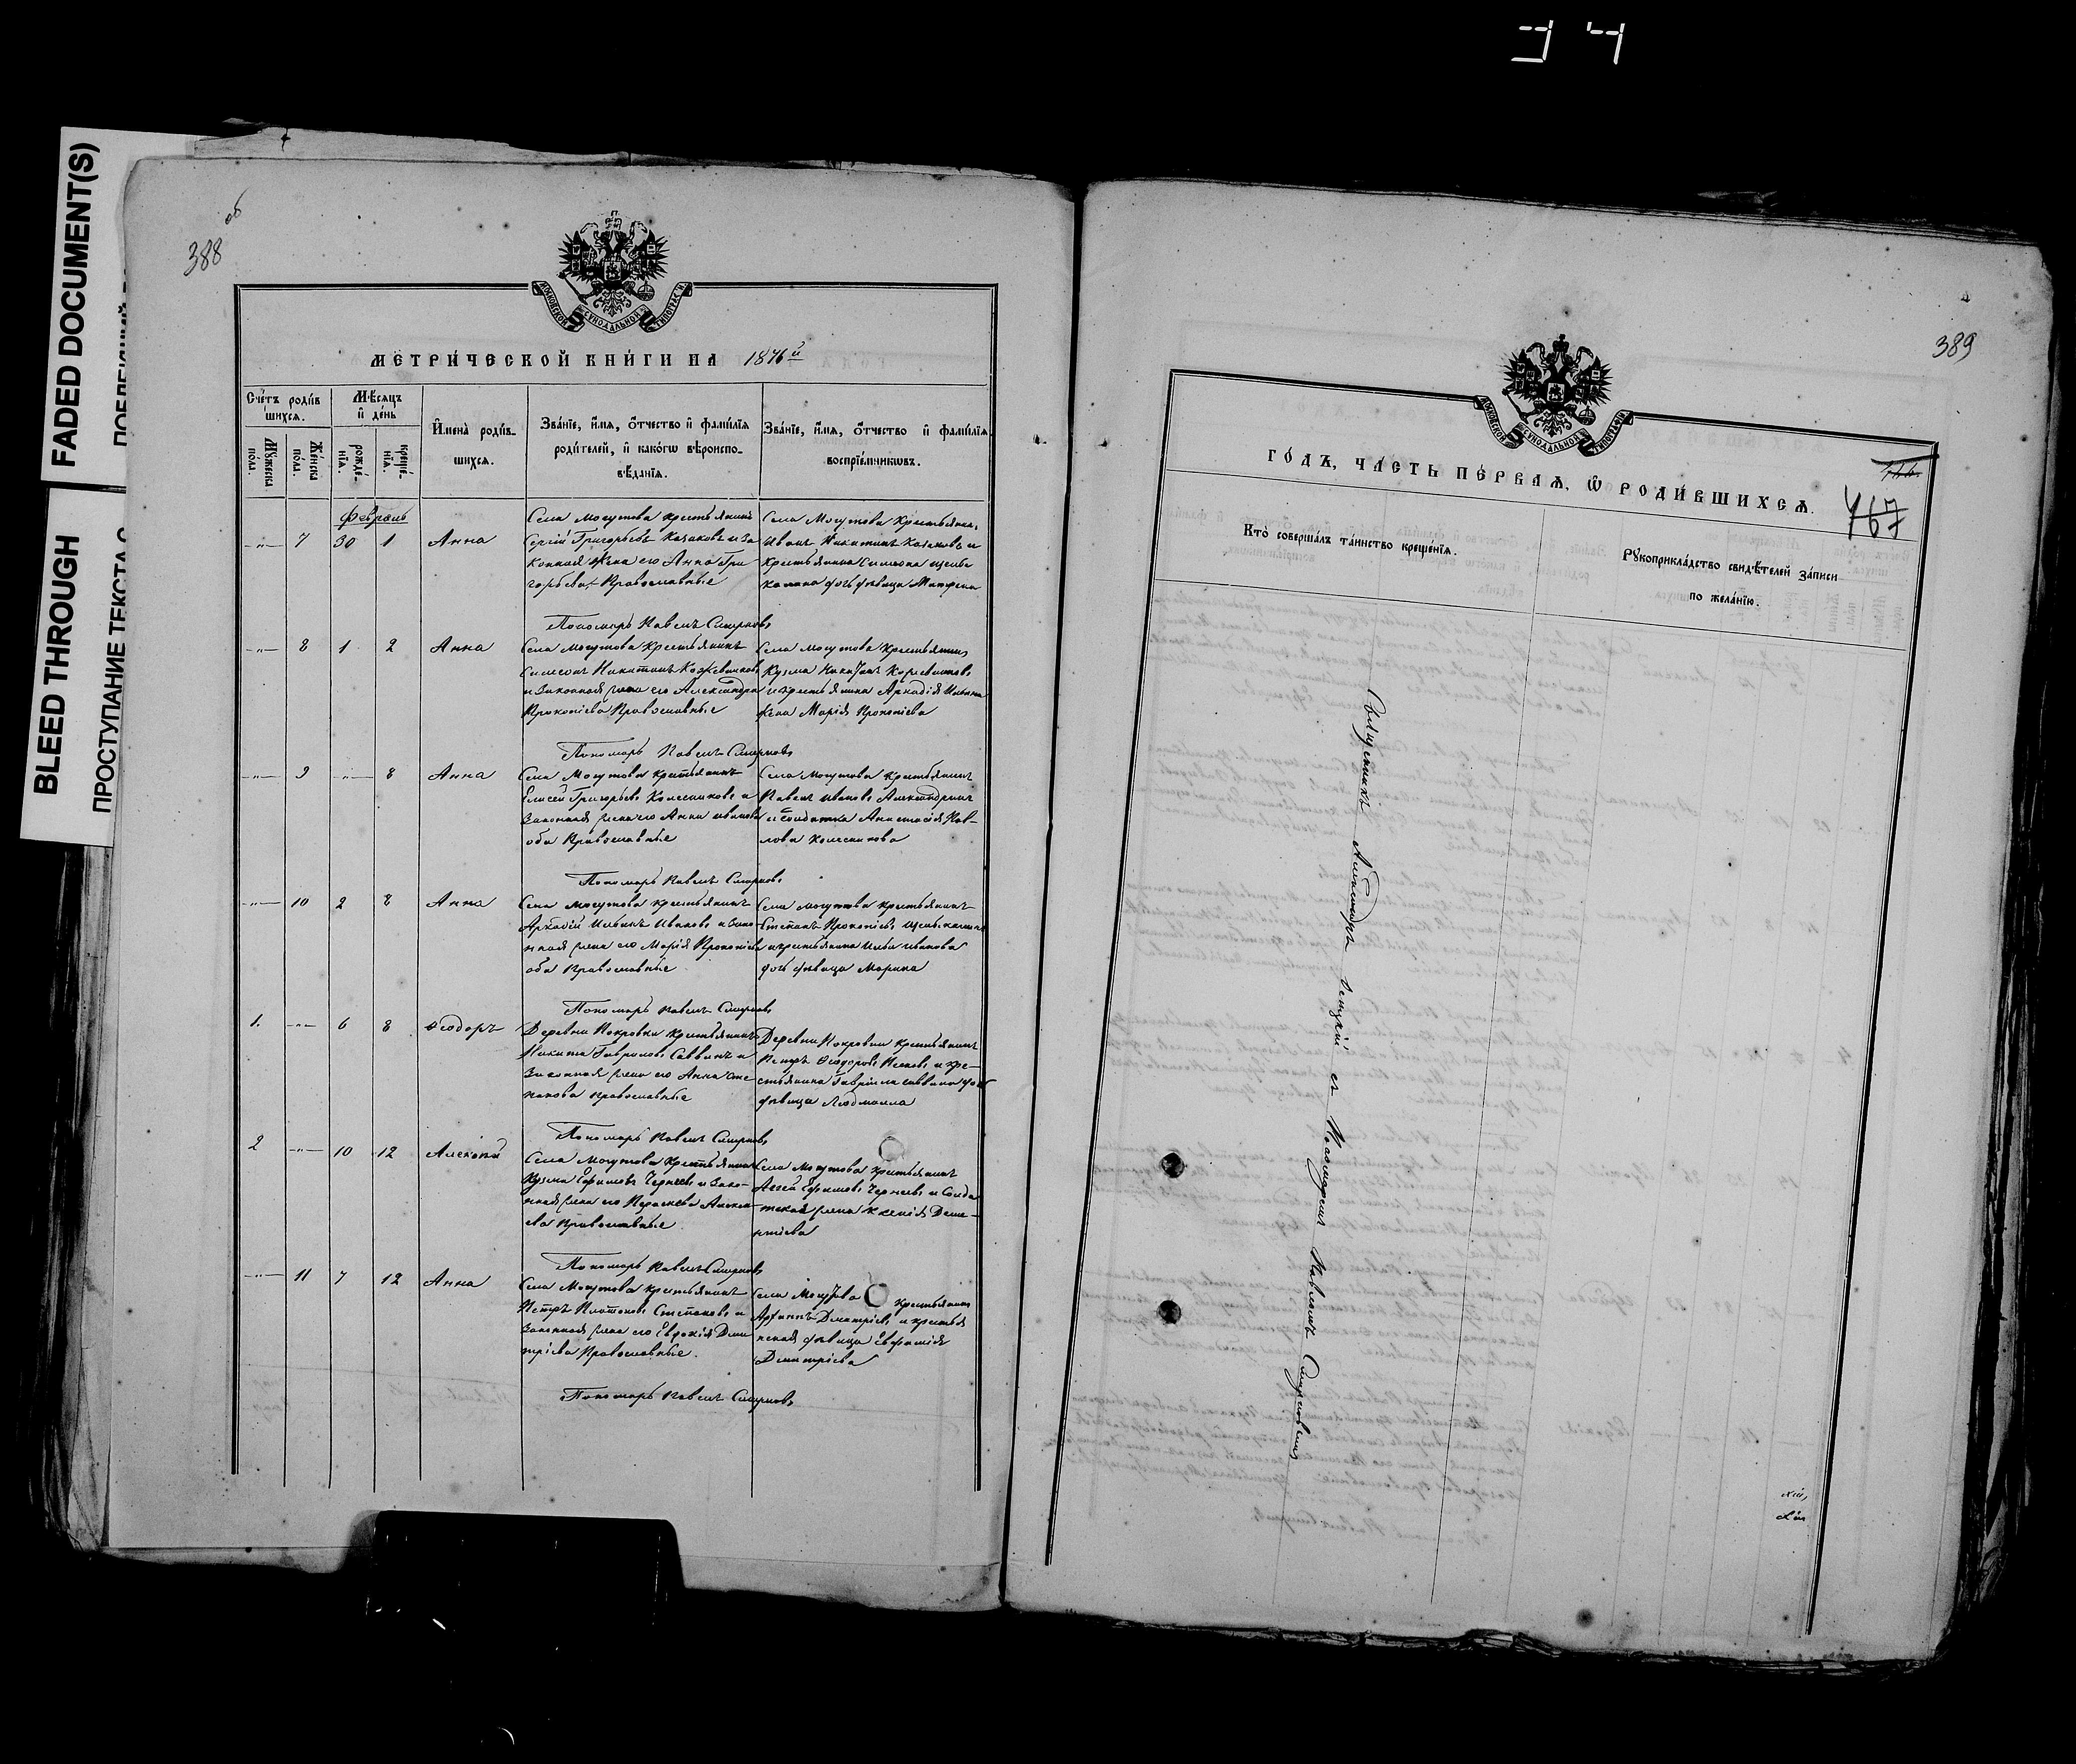 34
FADED DOCUMENT(S)
BLEED THROUGH
ПРОСТУПАНИЕ ТЕКСТА С
388
об
МОСКОВСКОЙ СѴНОДАЛЬНОЙ ТИПОГРАФІИ
МЕТРИ́ЧЕСКОЙ КНИ́ГИ НА 1876й
Счётъ роди́вшихся.
Мѣ́сяцъ и҆ де́нь
И҆мена̀ роди́вшихся.
Зва́нїе, и҆́мя, ѻ҆́тчество и҆ фамилїя роди́телей, и҆ како́гѡ вѣроисповѣ́данїя.
Зва́нїе, и҆́мя, ѻ҆́тчество и҆ фамилїя воспрїе́мникѡвъ.
Му́жеска по́ла.
Же́нска по́ла.
рожде́нїя.
креще́нїя.
Февраль
—"— 7 30 1 Анна
Села Могутова крестьянинъ
Сергій Григорьевъ Казаковъ и за
конная жена его Анна Гри
горьева Православные
Села Могутова крестьянин
Иванъ Никитинъ и
крестьянина дочь девица
Пономарь Павелъ Смирновъ
—"— 8 1 2 Анна
Села Могутова крестьянинъ
Симеонъ Никитинъ Кожевниковъ
и законная жена его Александра
Прокопіева Православные
Села Могутова крестьянинъ
Кузма
и крестьянина Аркадія Ильина
жена Марія Прокопіева
Пономарь Павелъ Смирновъ
—"— 9 —"— 8 Анна
Села Могутова крестьянинъ
Елисей Григорьевъ Колесниковъ и
законная жена его Анна Ивано
ва Православные
Села Могутова крестьянинъ
Павелъ Ивановъ Александринъ
и солдатка Анастасія Пав-
лова Колесникова
Пономарь Павелъ Смирновъ
—"— 10 2 8 Анна
Села Могутова крестьянинъ
Аркадій Ильинъ Ивановъ и зако
нная жена его Марія Прокопіева
оба Православные
Села Могутова крестьянинъ
Степанъ Прокопіевъ
и крестьянина Ильи Иванова
дочь девица Марина
Пономарь Павелъ Смирновъ
1. —"— 6 8 Ѳеодоръ
Деревни Покровки крестьянинъ
Никита Гавриловъ Саввинъ и
законная жена его Анна Сте
панова православные
Деревни Покровки крестьянинъ
Петръ Ѳеодоровъ и кре-
стьянина Гавріила Саввина дочь
девица Людмилла
Пономарь Павелъ Смирновъ
2 —"— 10 12 Алексій
Села Могутова крестьянинъ
Кузма Ефимовъ Черневъ и зако-
нная жена его Параскева Алексе-
ева Православные
Села Могутова крестьянинъ
Ефимовъ Черневъ и солда
тская жена Ксенія Деме-
нтіева
Пономарь Павелъ Смирновъ
—"— 11 7 12 Анна
Села Могутова крестьянинъ
Петръ Платоновъ Степановъ и
законная жена его Евдокія Дми
тріева Православные
Села Могутова крестьянинъ
Дмитріевъ и крестья
нская девица Евфимія
Дмитріева
Пономарь Павелъ Смирновъ
389
МОСКОВСКОЙ СѴНОДАЛЬНОЙ ТИПОГРАФІИ
ГО́ДЪ, ЧА́СТЬ ПЕ́РВАЯ, Ѡ РОДИ́ВШИХСЯ.
767
Кто̀ соверша́лъ та́инство креще́нїя.
Рꙋкоприкла́дство свидѣ́телей за́писи по жела́нїю.
Священникъ Александръ съ Пономаремъ Павломъ Смирновымъ